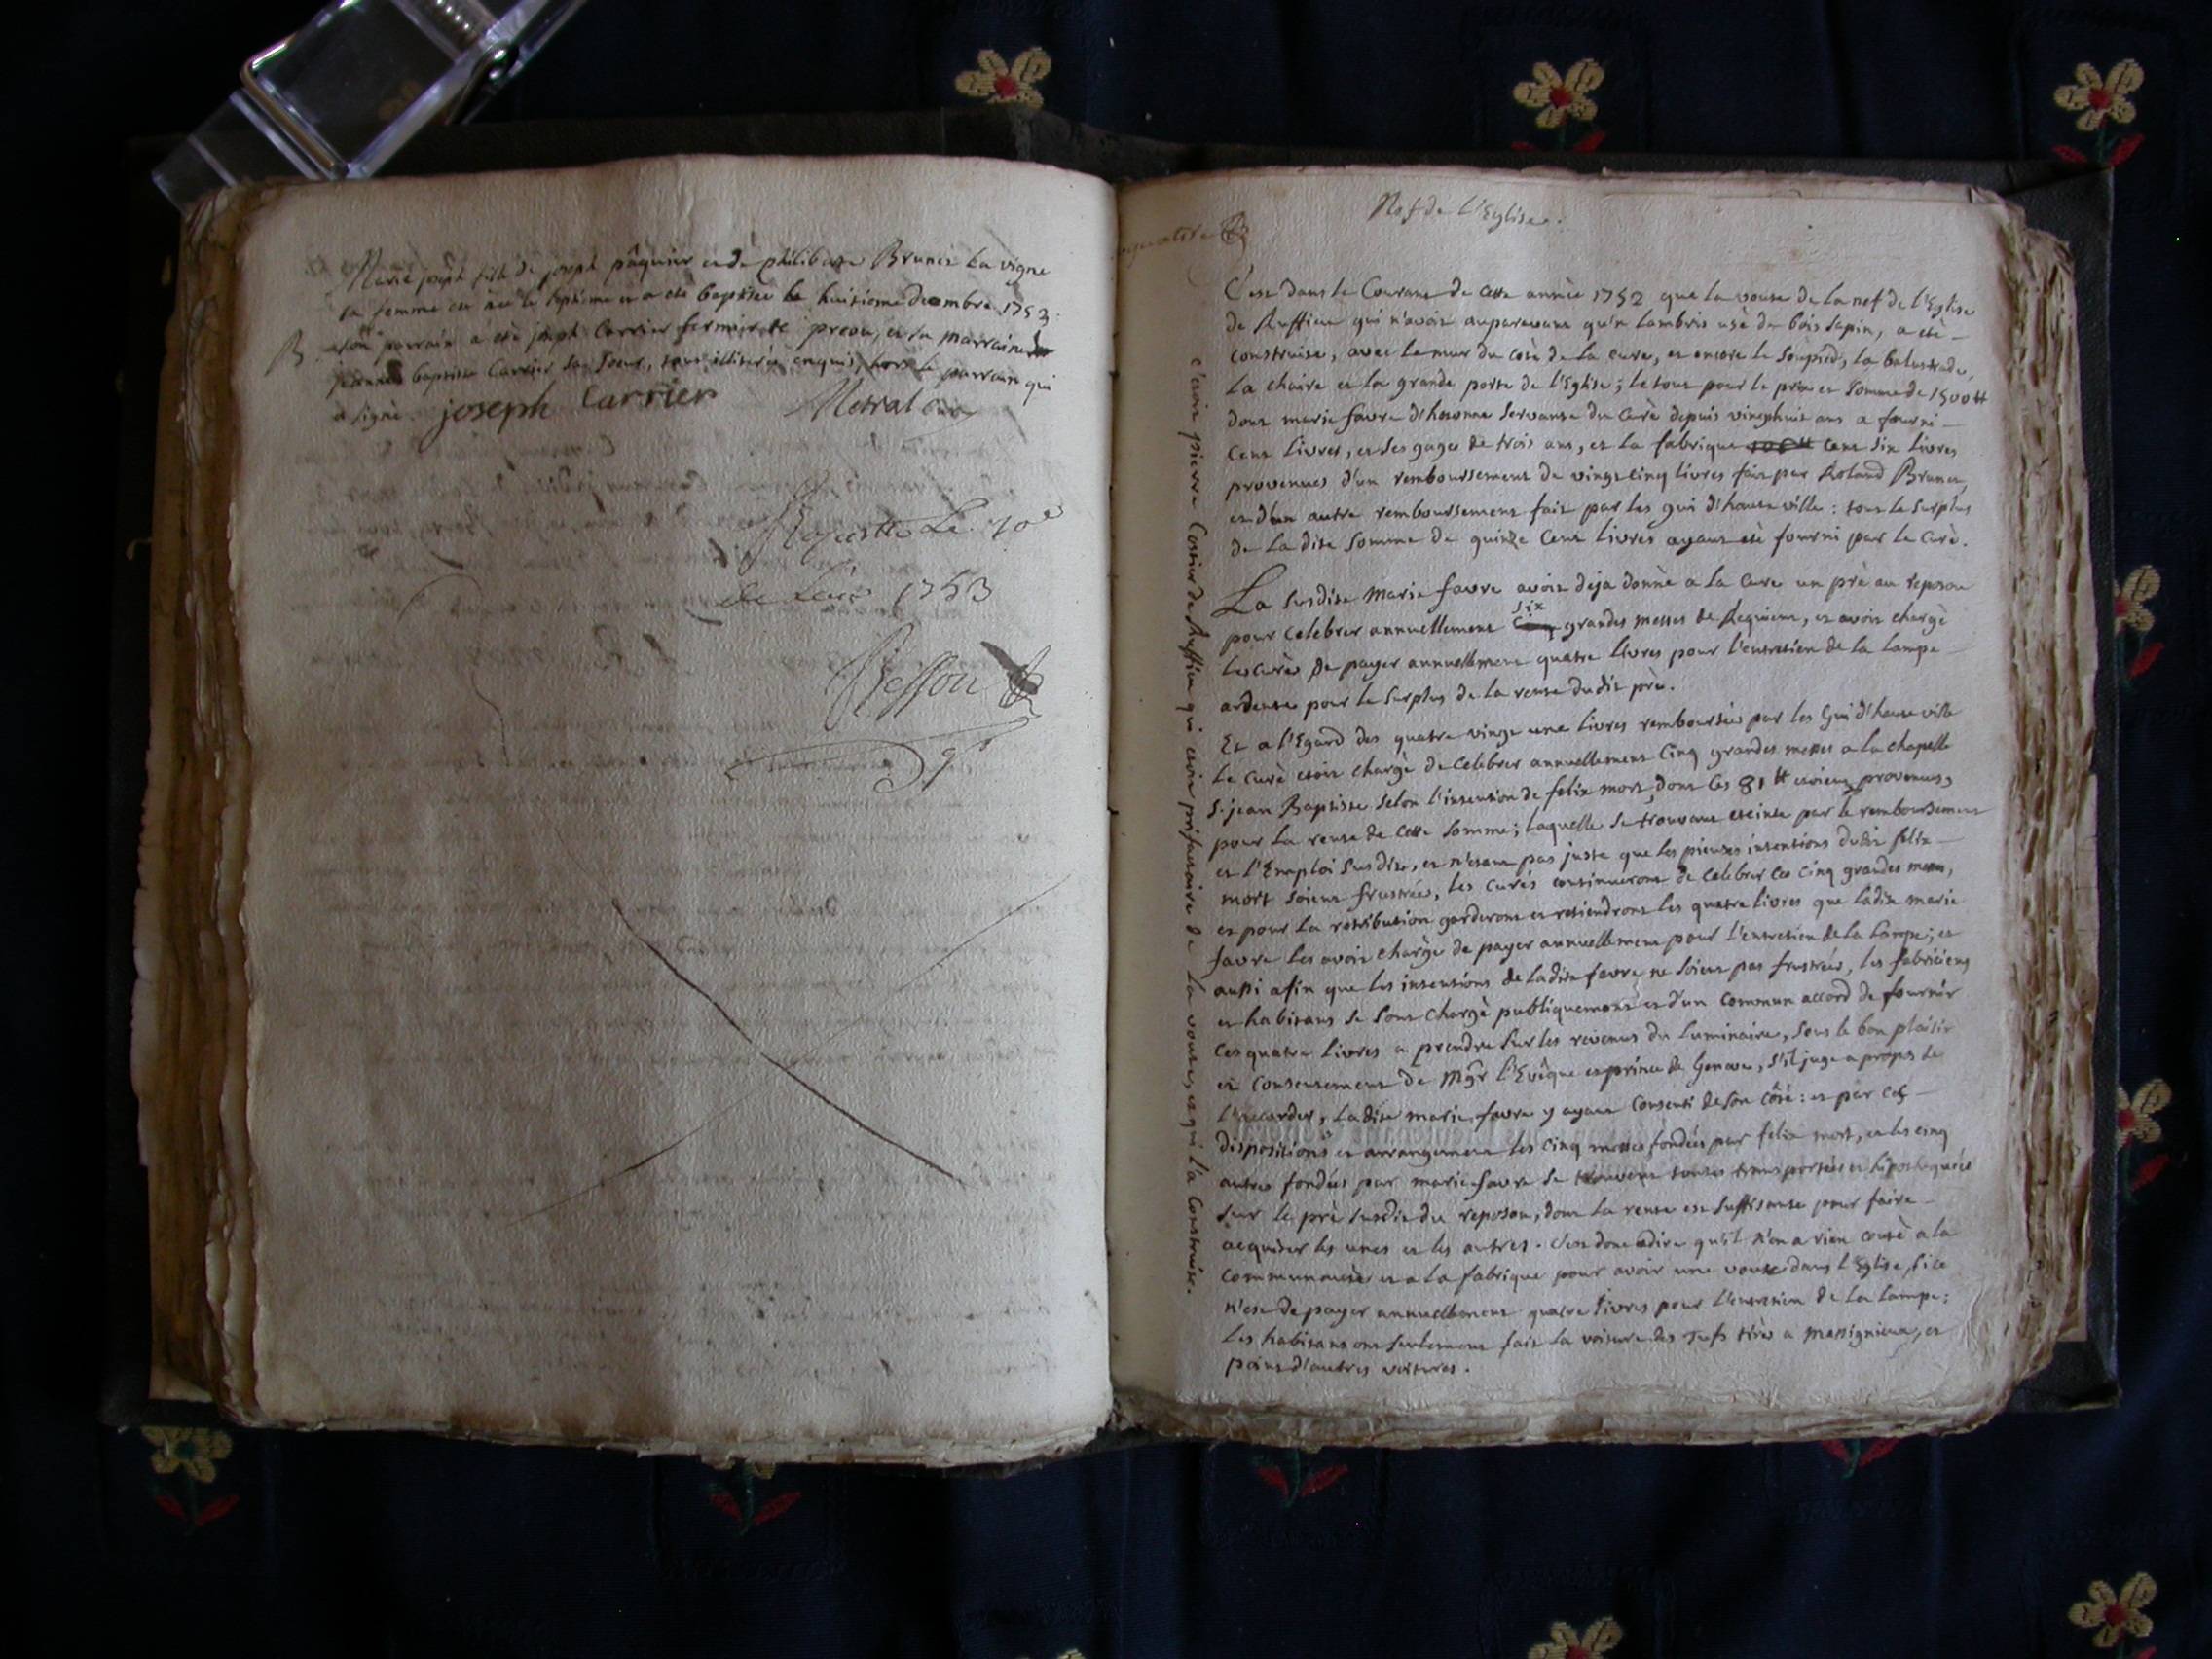 Marie joseph fille de joseph pâquier et de philiberte Brunet La vigne
sa femme est née le septieme et a eté baptisée le huitieme decembre 1753.
B son parrain a eté joseph Carrier fermier de et sa marraine
baptiste Carrier sa soeur, tous illiterés enquis, hors le parrain qui
a signé. joseph Carrier Metral Curé
Le 10e
1753
Nef de l'Eglise.
C'est dans le Courant de cette année 1752 que la voute de la nef de l'Eglise
de Ruffieu qui n'avoit auparavant qu'un lambris usé de bois sapin, a eté
construite, avec le mur du coté de la cure, et encore le soupied, la balustrade,
La chaire et la grande porte de l'Eglise; le tout pour le prix et somme de 1500 tt
dont marie favre d'hotonne servante du Curé depuis vingthuit ans a fourni
Cent livres, et ses gages de trois ans, et la fabrique cent six livres
provenues d'un remboursement de vingt cinq livres fait par Roland Brunet,
et d'un autre remboursement fait par les gui d'hauteville : tout le surplus
de la dite somme de quinze Cent livres ayant eté fourni par le Curé.
La susdite Marie favre avoit deja donné a la Cure un pré au reposou
pour celebrer annuellement six grandes messes de Requiem, et avoit chargé
les curés de payer annuellement quatre livres pour l'entretien de la lampe
ardente pour le surplus de la rente dudit pré.
Et a l'Egard des quatre vingt une livres remboursées par les Gui d'hauteville
le curé etoit chargé de celebrer annuellement Cinq grandes messes a la chapelle
S. jean Baptiste selon l'intention de felix mort, dont les 81 tt etoient provenues,
pour la rente de cette somme; laquelle se trouvant eteinte par le remboursement
et l'Emploi susdits, et n'etant pas juste que les pieuses intentions dudit felix
mort soient frustrées, les curés continueront de celebrer ces cinq grandes messes,
et pour la retribution garderont et retiendront les quatre livres que ladite marie
favre les avoit chargé de payer annuellement pour l'entretien de la lampe; et
aussi afin que les intentions de ladite favre ne soient pas frustrées, les fabriciens
et habitans se sont chargé publiquement et d'un commun accord de fournir
ces quatre livres a prendre sur les revenus du luminaire, sous le bon plaisir
et consentement de Mgr l'Evêque et prince de Geneve, s'il juge a propos de
l'accorder, ladite marie favre y ayant consenti de son côté : et par ces
dispositions et arrangement les cinq messes fondées par felix mort, et les cinq
autres fondées par marie favre se trouvent toutes transportées et hipothequées
sur le pré susdit du reposou, dont la rente est suffisante pour faire
acquiter les unes et les autres. c'est donc adire qu'il n'en a rien couté a la
communauté et a la fabrique pour avoir une voute dans l'Eglise, si ce
n'est de payer annuellement quatre livres pour l'entretien de la lampe;
Les habitans ont seulement fait la voiture des tufs tirés a Massignieu, et
point d'autres voitures.
c'etoit pierre de Ruffieu qui etoit prifactaire de la voute, et qui l'a Construite.